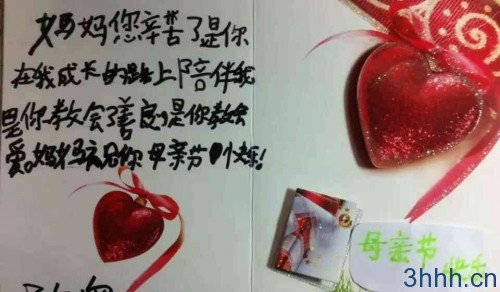 妈妈您辛苦了是你
在我成长的路上陪伴我
是你教会了善良,是你教会
爱。妈妈祝你母亲节快乐!
母亲节
快乐
3hhh.cn